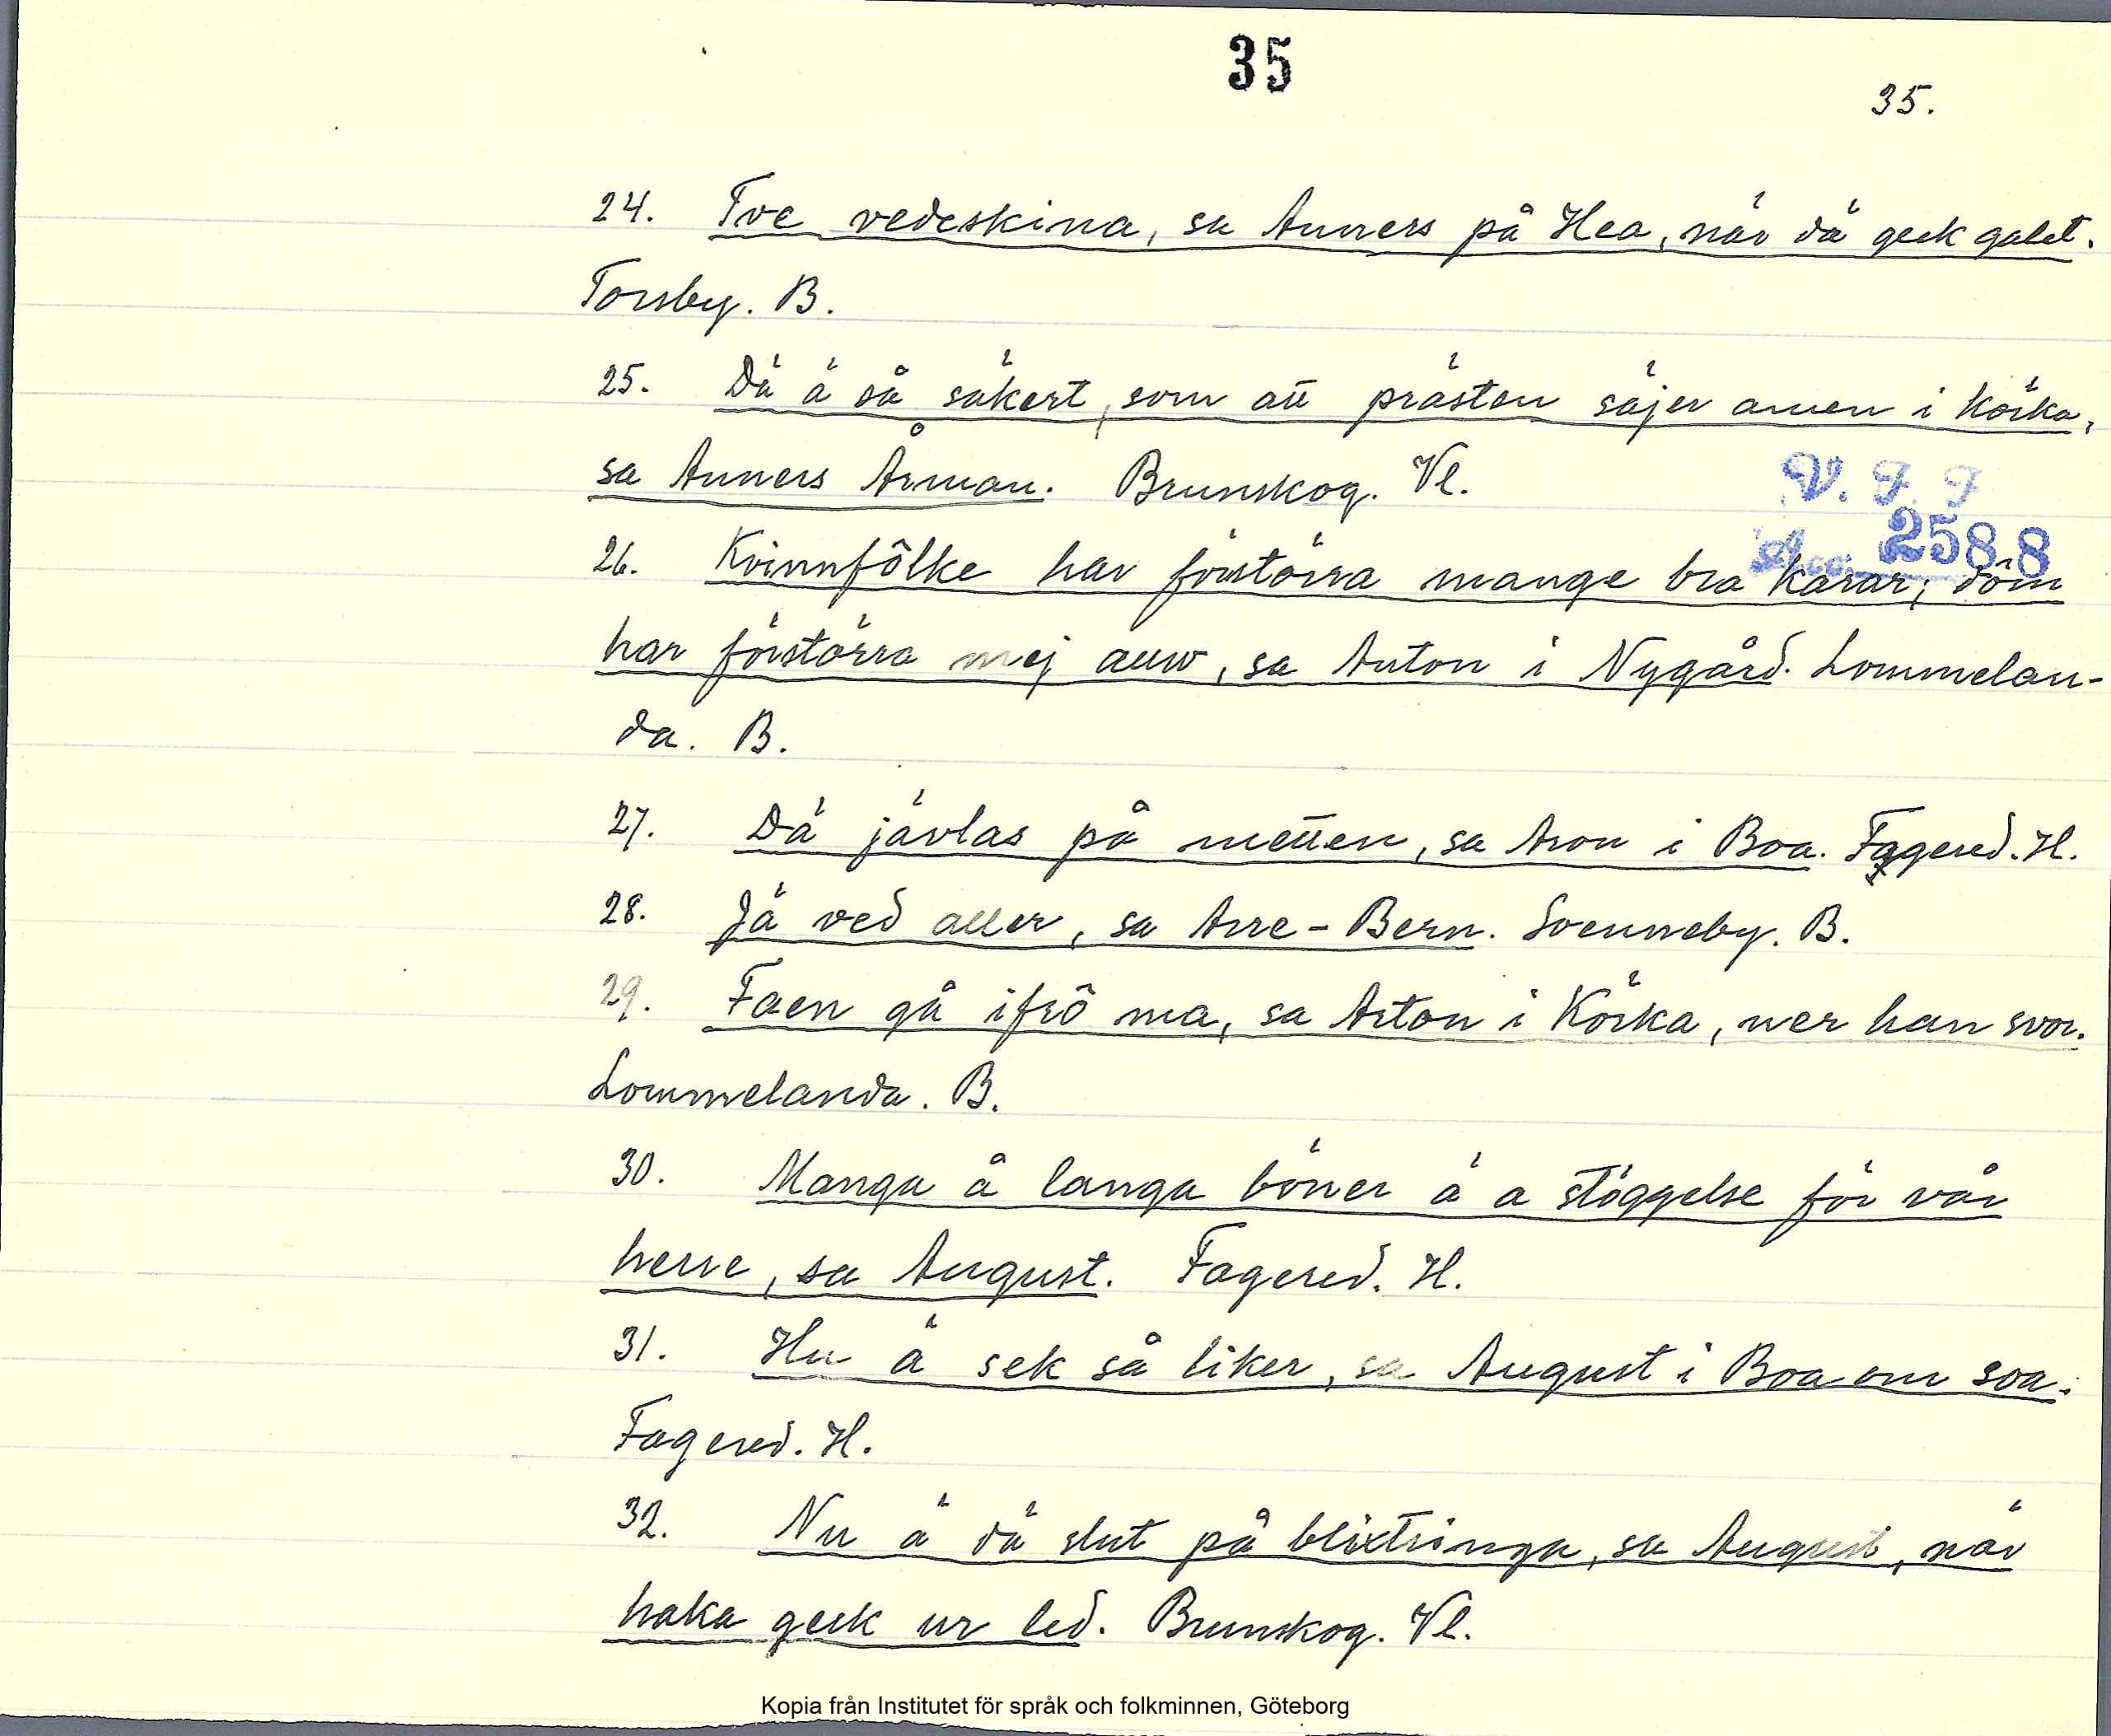 35
35.
24. Tve vedeskina, sa Anners på Hea, när dä geck galet.
Torsby. B.
25. Dä ä så säkert, som att prästen säjer amen i körka,
sa Anners Årman. Brunskog. Vl.
V. F. F
Acc. 2588
26. Kvinnfôlke har förstörra mange bra karar; dôm
har förstörra mej auw, sa Anton i Nygård. Lommelan-
da. B.
27. Dä jävlas på metten, sa Aron i Boa. Fagered. H.
28. Jä ved aller, sa Arre-Bern. Svenneby. B.
29. Faen gå ifrô ma, sa Arton i Körka, ner han svor.
Lommelanda. B.
30. Manga å langa böner ä a stöggelse för vår
herre, sa August. Fagered. H.
31. Hu ä sek så liker, sa August i Boa om soa.
Fagered. H.
32. Nu ä dä slut på blixtringa, sa August, när
haka geck ur led. Brunskog. Vl.
Kopia från Institutet för språk och folkminnen, Göteborg